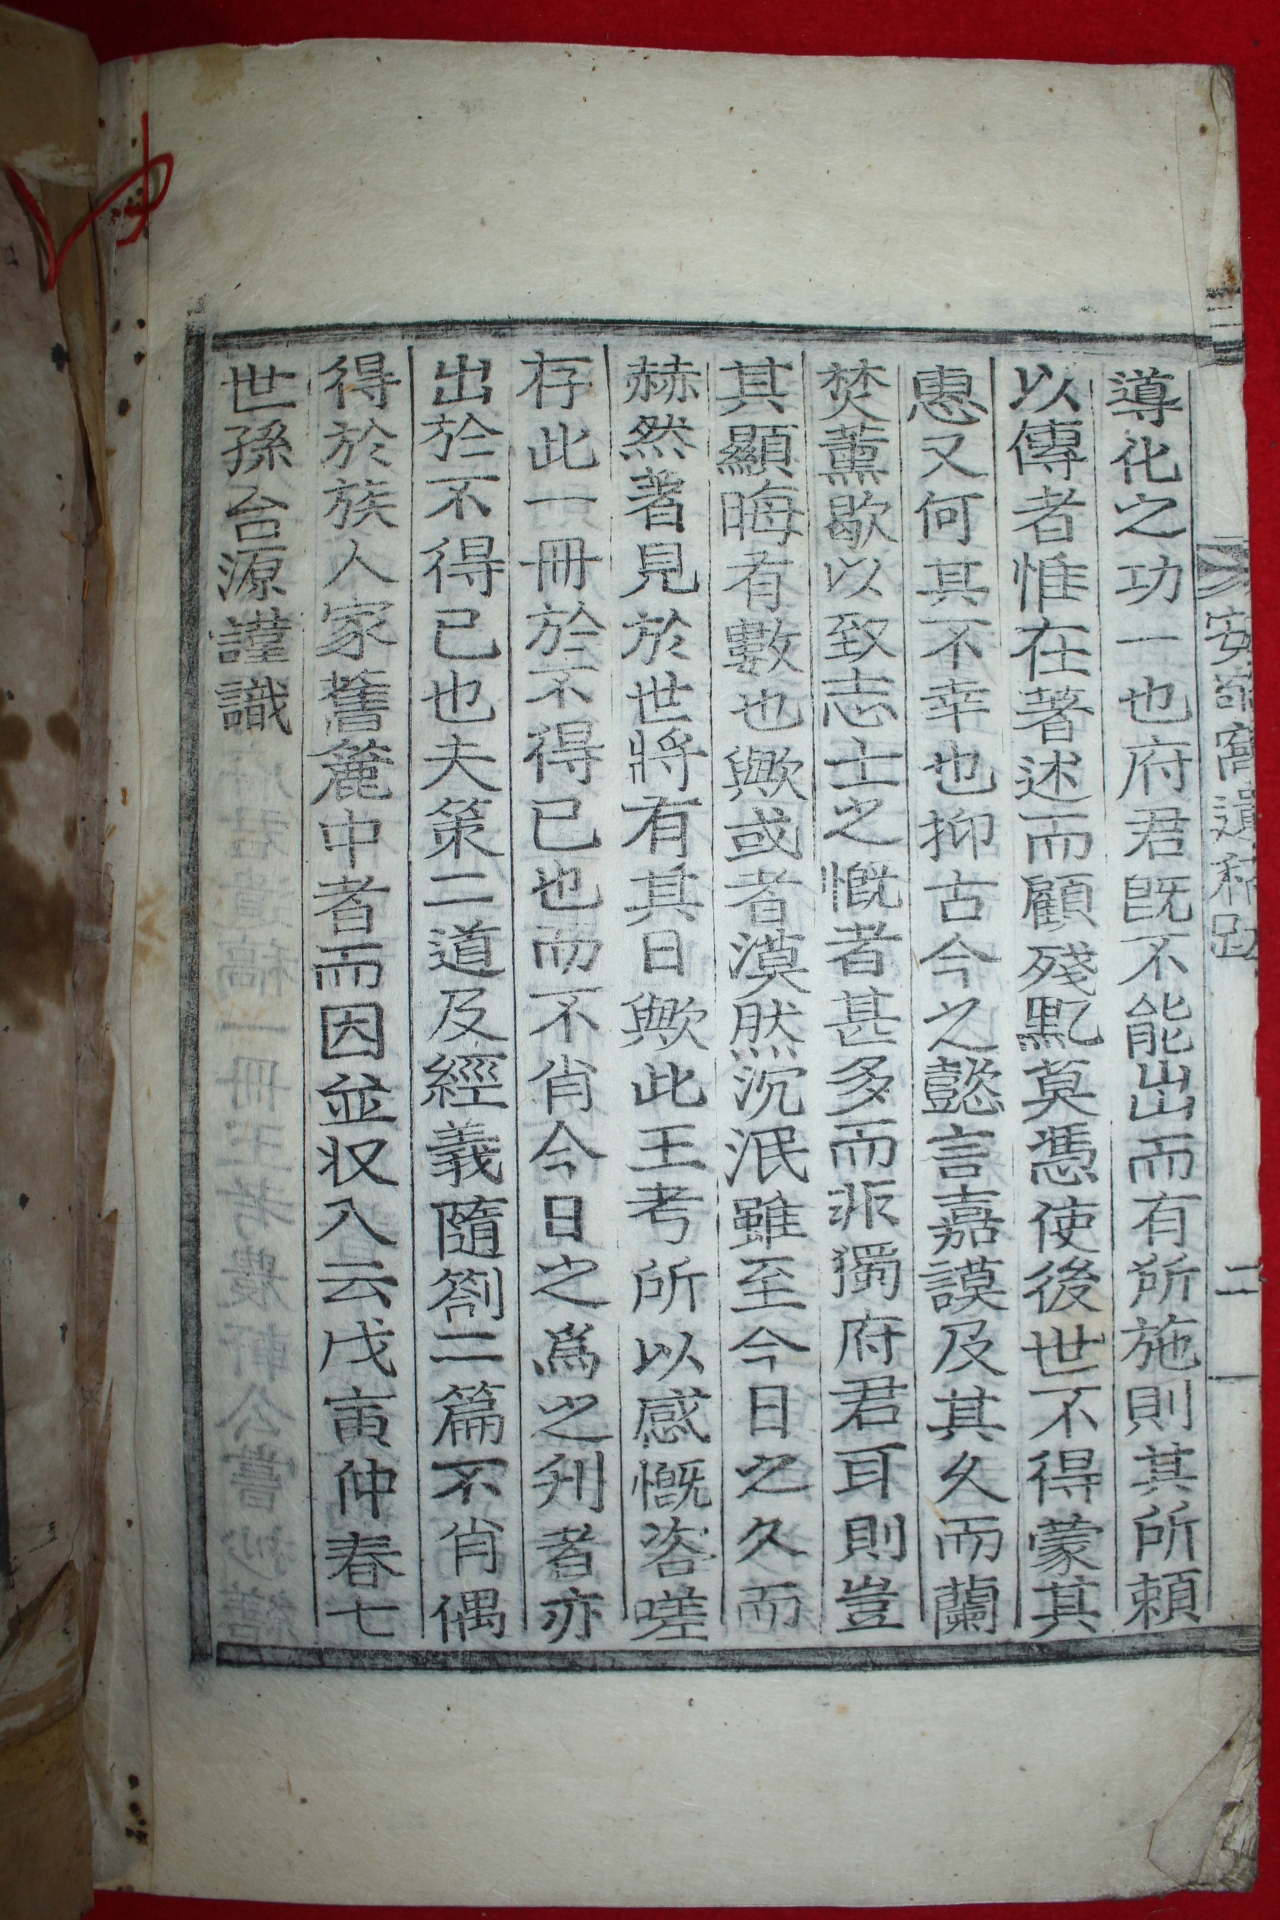 導化之功一也府君旣不能出而有所施則其所賴
以傳者惟在著述而顧殘㸃莫憑使後世不得蒙其
惠又何其不幸也抑古今之懿言嘉謨及其久而蘭
焚薰歇以致志士之慨者甚多而非獨府君耳則豈
其顯晦有數也歟或者漠然沉泯雖至今日之久而
赫然著見於世將有其日歟此王考所以感慨咨嗟
存此一冊於不得已也而不肖今日之爲之刋者亦
出於不得已也夫策二道及經義隨劄二篇不肖偶
得於族人家舊簏中者而因並収入云戊寅仲春七
世孫台源謹識
安敬窩遺稿跋
二